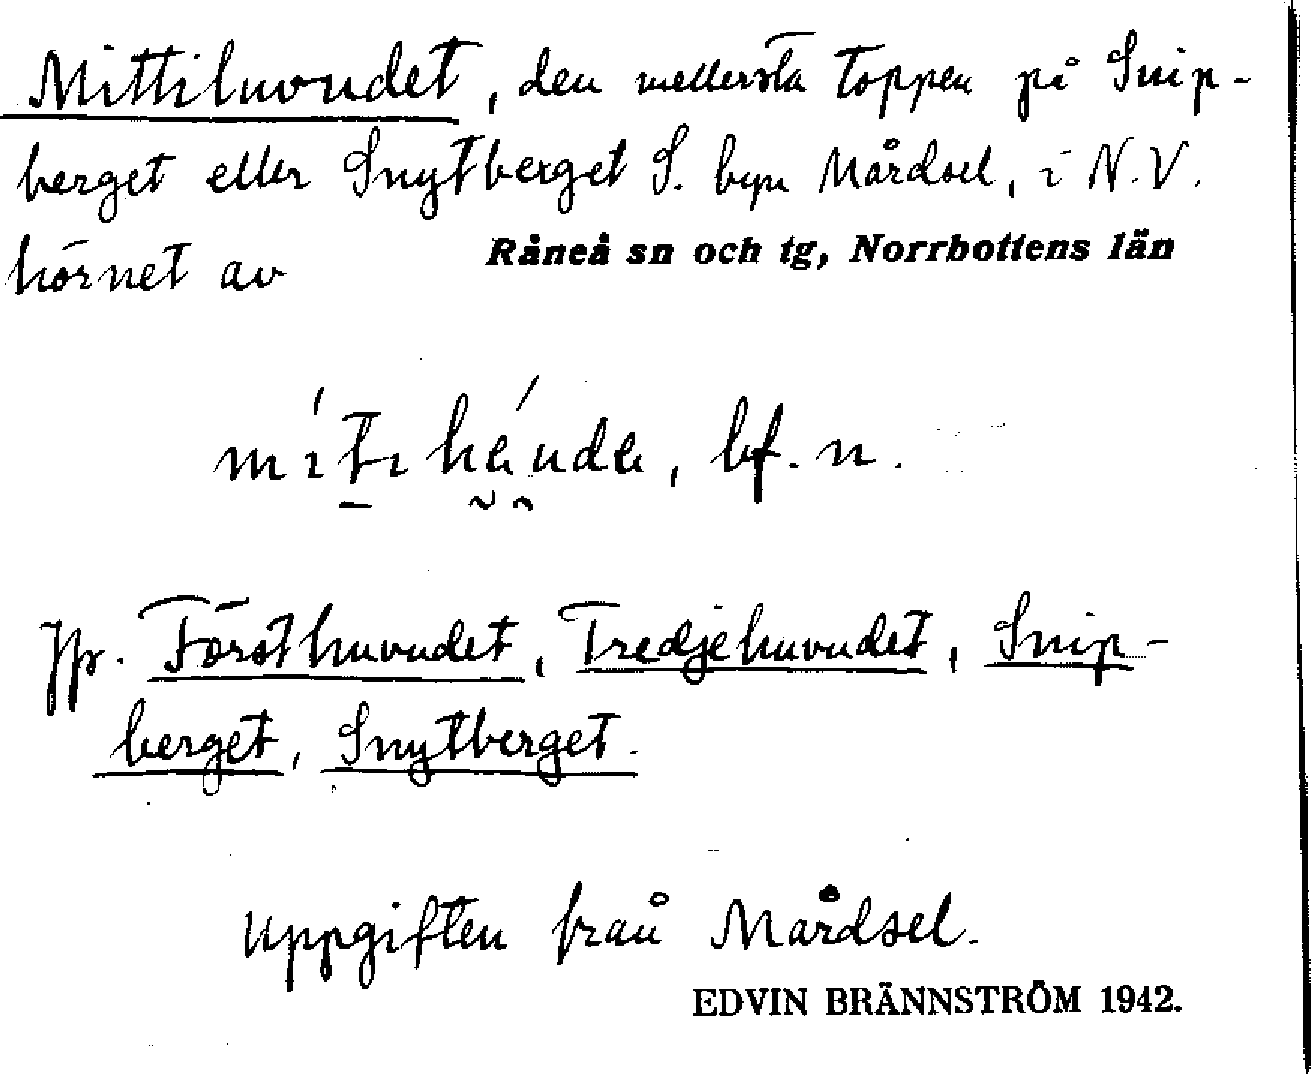 Mittihuvudet, den mellersta toppen på Snip-
berget eller Snytberget S. byn Mårdsel, i N.V.
hörnet av Råneå sn och tg, Norrbottens län
bf. n.
Jfr. Försthuvudet, Tredjehuvudet, Snip-
berget, Snytberget.
Uppgiften från Mårdsel.
EDVIN BRÄNNSTRÖM 1942.